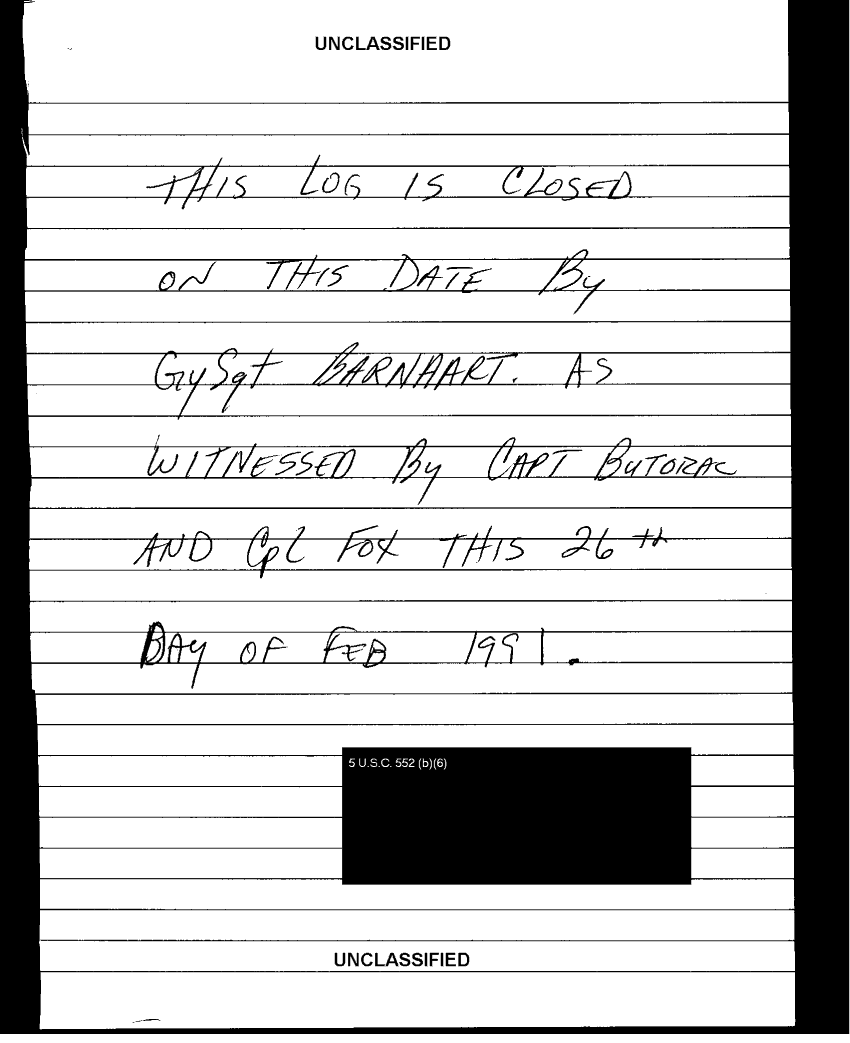 UNCLASSIFIED
THIS LOG IS CLOSED
ON THIS DATE By
GySgt BARNHART. AS
WITNESSED By CAPT BUTORAC
AND CpL FOX THIS 26th
DAy OF FEB 1991.
5 U.S.C. 552 (b)(6)
UNCLASSIFIED